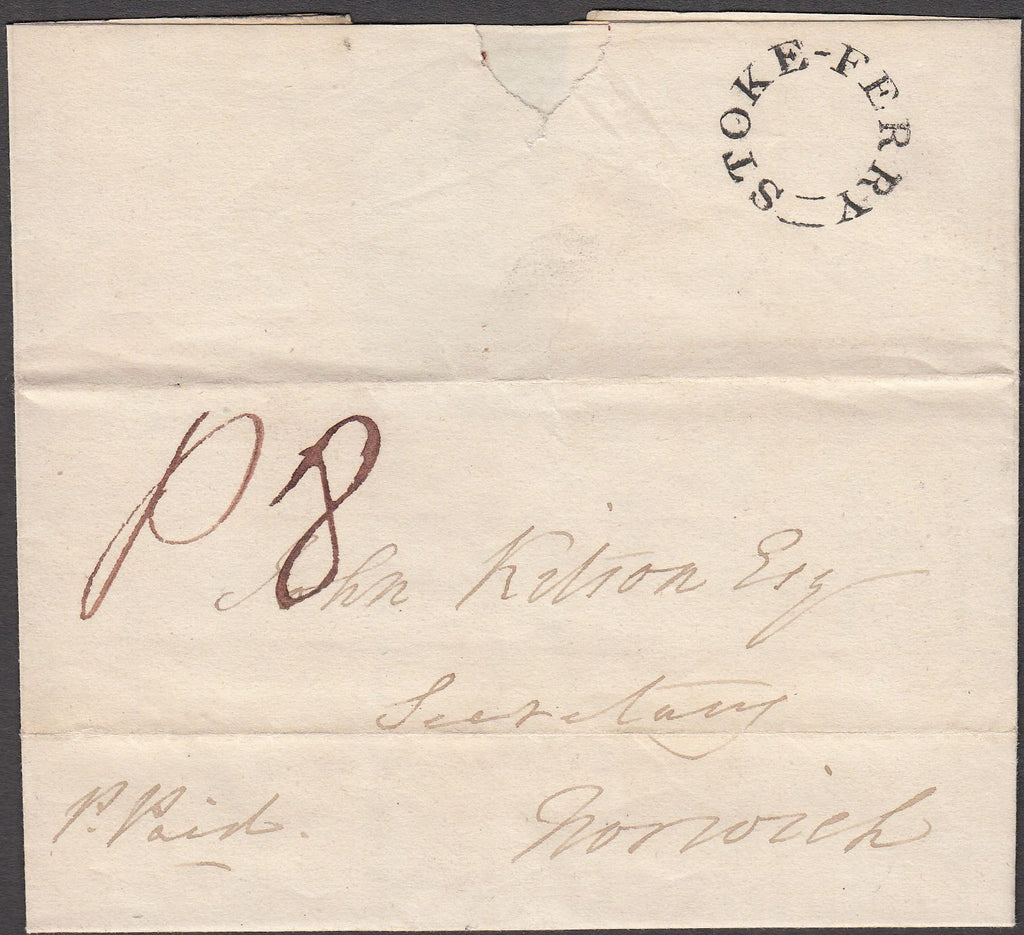 STOKE-FERRY
P 8
John Kitson Esq
Secretary
P. Paid.
Norwich